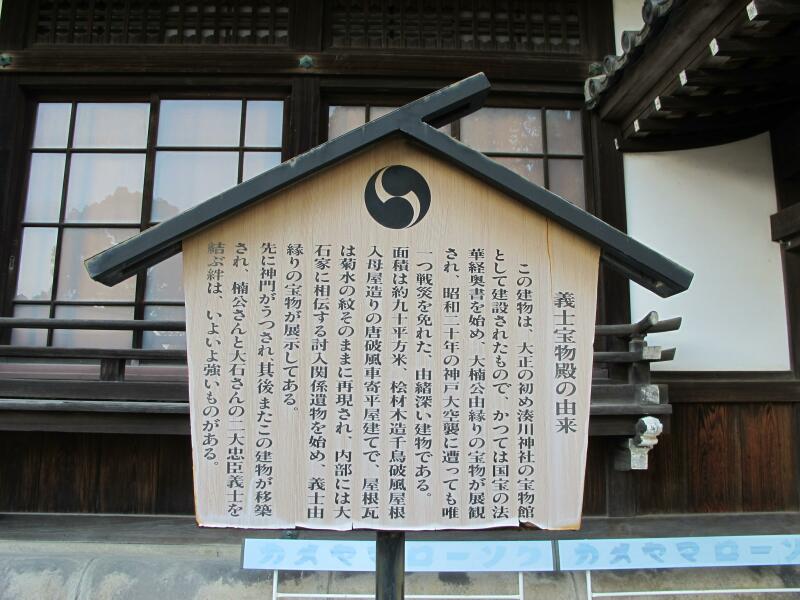 義士宝物殿の由来
この建物は、大正の初め湊川神社の宝物館
として建設されたもので、かつては国宝の法
華経奥書を始め、大楠公由縁りの宝物が展観
され、昭和二十年の神戸大空襲に遭っても唯
一つ戦災を免れた、由緒深い建物である。
面積は約九十平方米、桧材木造千鳥破風屋根
入母屋造りの唐破風車寄平屋建てで、屋根瓦
は菊水の紋そのままに再現され、内部には大
石家に相伝する討入関係遺物を始め、義士由
縁りの宝物が展示してある。
先に神門がうつされ、其後またこの建物が移築
され、楠公さんと大石さんの二大忠臣義士を
結ぶ絆は、いよいよ強いものがある。
カメヤマローソク
カメヤマローソ